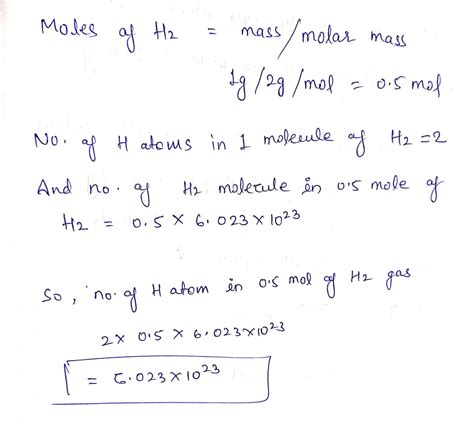 Moles of H2 = mass/molar mass
1g/2g/mol = 0.5 mol
No. of H atoms in 1 molecule of H2 = 2
And no. of H2 molecule in 0.5 mole of
H2 = 0.5 × 6.023×10²³
So, no. of H atom in 0.5 mol of H2 gas
2× 0.5 × 6.023×10²³
= 6.023×10²³